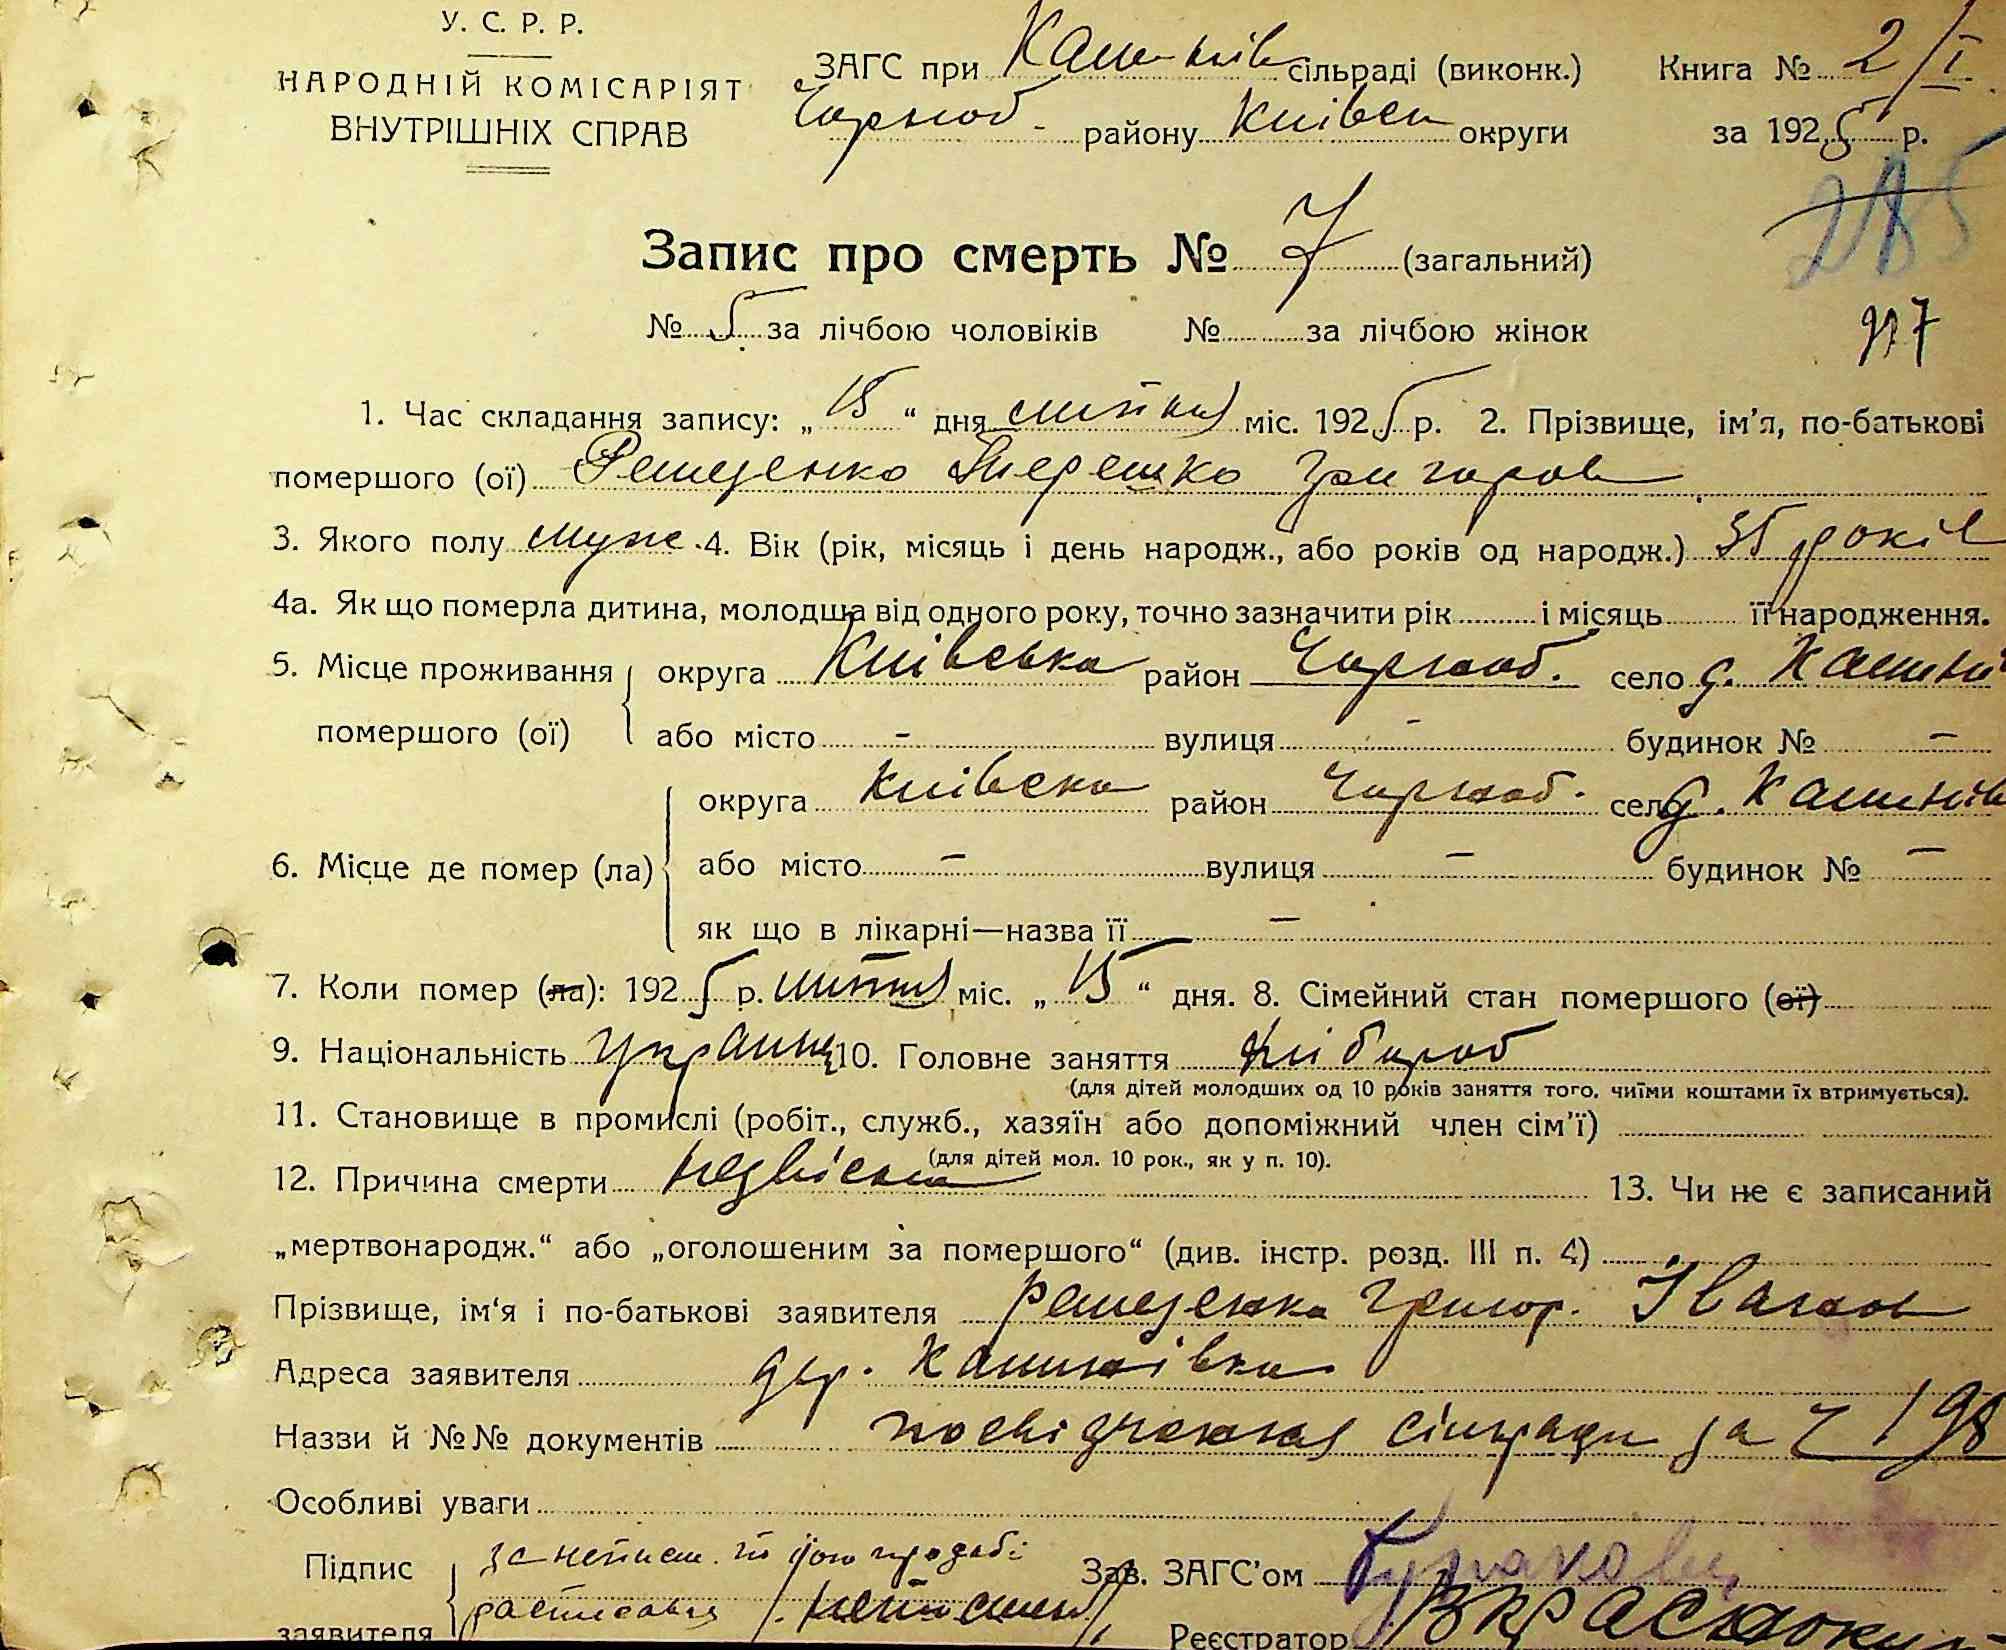 У. С. Р. Р.
НАРОДНІЙ КОМІСАРІЯТ
ВНУТРІШНІХ СПРАВ
ЗАГС при сільраді (виконк.) Книга № 2/I
Чорноб. району Київськ округи за 1925 р.
285
Запис про смерть № 7 (загальний)
№ 5 за лічбою чоловіків № за лічбою жінок
1. Час складання запису: „ 15 “ дня липня міс. 1925 р. 2. Прізвище, ім'я, по-батькові
помершого (ої) Григоров
3. Якого полу муж. 4. Вік (рік, місяць і день народж., або років од народж.) 35 років
4а. Як що померла дитина, молодша від одного року, точно зазначити рік і місяць її народження.
5. Місце проживання округа Київська район Чорноб. село д.
помершого (ої) або місто – вулиця – будинок № –
округа Київска район Чорноб. село д.
6. Місце де помер (ла) або місто – вулиця – будинок № –
як що в лікарні—назва її –
7. Коли помер (ла): 1925 р. липня міс. „ 15 “ дня. 8. Сімейний стан помершого (ої)
9. Національність украинц 10. Головне заняття хлібороб
(для дітей молодших од 10 років заняття того, чиїми коштами їх втримується).
11. Становище в промислі (робіт., служб., хазяїн або допоміжний член сім'ї)
(для дітей мол. 10 рок., як у п. 10).
12. Причина смерти 13. Чи не є записаний
„мертвонародж.“ або „оголошеним за помершого“ (див. інстр. розд. III п. 4)
Прізвище, ім'я і по-батькові заявителя Григор. Іванов
Адреса заявителя дер.
Назви й №№ документів посвідчення сільради за ч 198
Особливі уваги
Підпис за неписм. по його прозьбі
заявителя росписався
Зав. ЗАГС'ом
Реєстратор